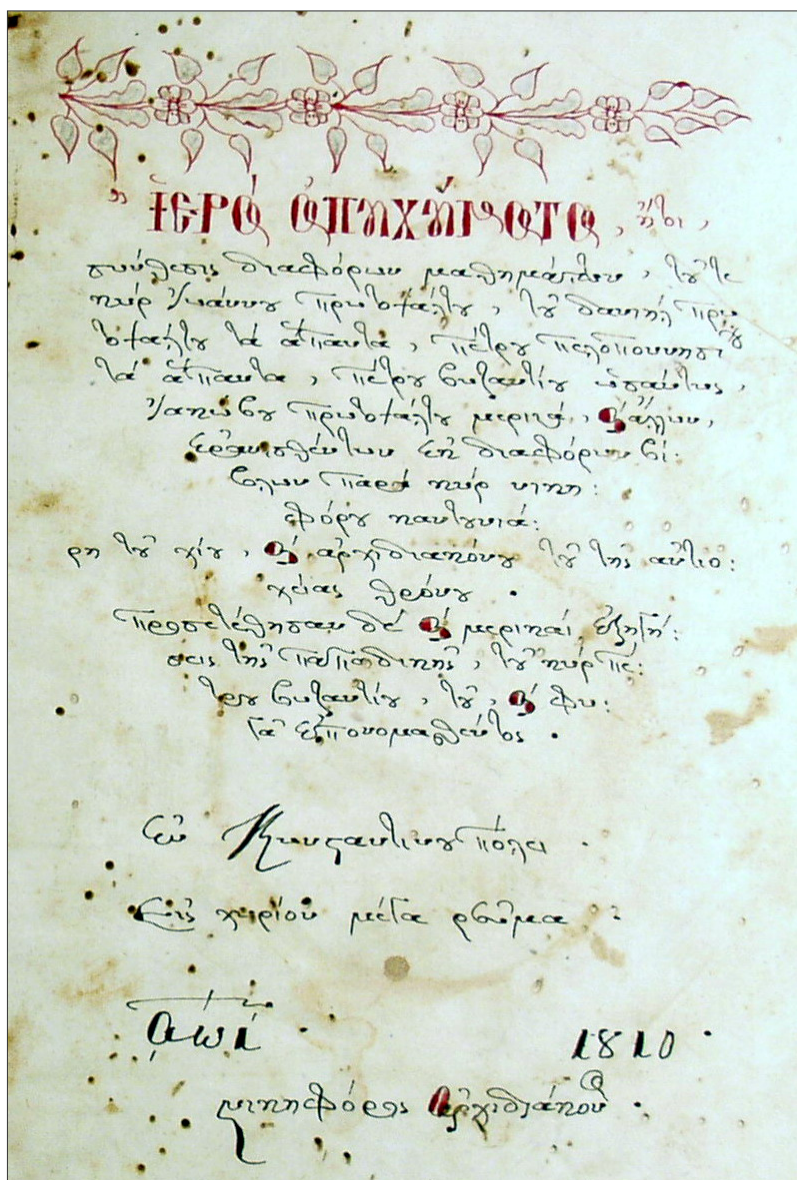 Ἱερὰ ἀπηχήματα, ἤτοι,
σύνθεσις διαφόρων μαθημάτων, τοῦ τε
κὺρ Ἰωάννου πρωτοψάλτου, τοῦ δανιὴλ πρω
τοψάλτου τὰ ἅπαντα, πέτρου πελοποννησίου
τὰ ἅπαντα, πέτρου βυζαντίου ὡσαύτως,
Ἰακώβου πρωτοψάλτου μερικά, καὶ ἄλλων,
ἐρανισθέντων ἐκ διαφόρων βί:
βλων παρὰ κὺρ νικη:
φόρου καντουνιά:
ρη τοῦ χίου, καὶ ἀρχιδιακόνου τοῦ τῆς ἀντιο:
χείας θρόνου.
προσετέθησαν δὲ καὶ μερικαὶ ἐξηγή:
σεις τῆς παπαδικῆς, τοῦ κὺρ πέ:
τρου βυζαντίου, τοῦ, καὶ φυ:
γᾶ ἐπονομασθέντος.
Ἐν Κωνσταντινουπόλει.
Εἰς χωρίον μέγα ῥεῦμα
͵αωί. 1810.
νικηφόρος ἀρχιδιάκονος.